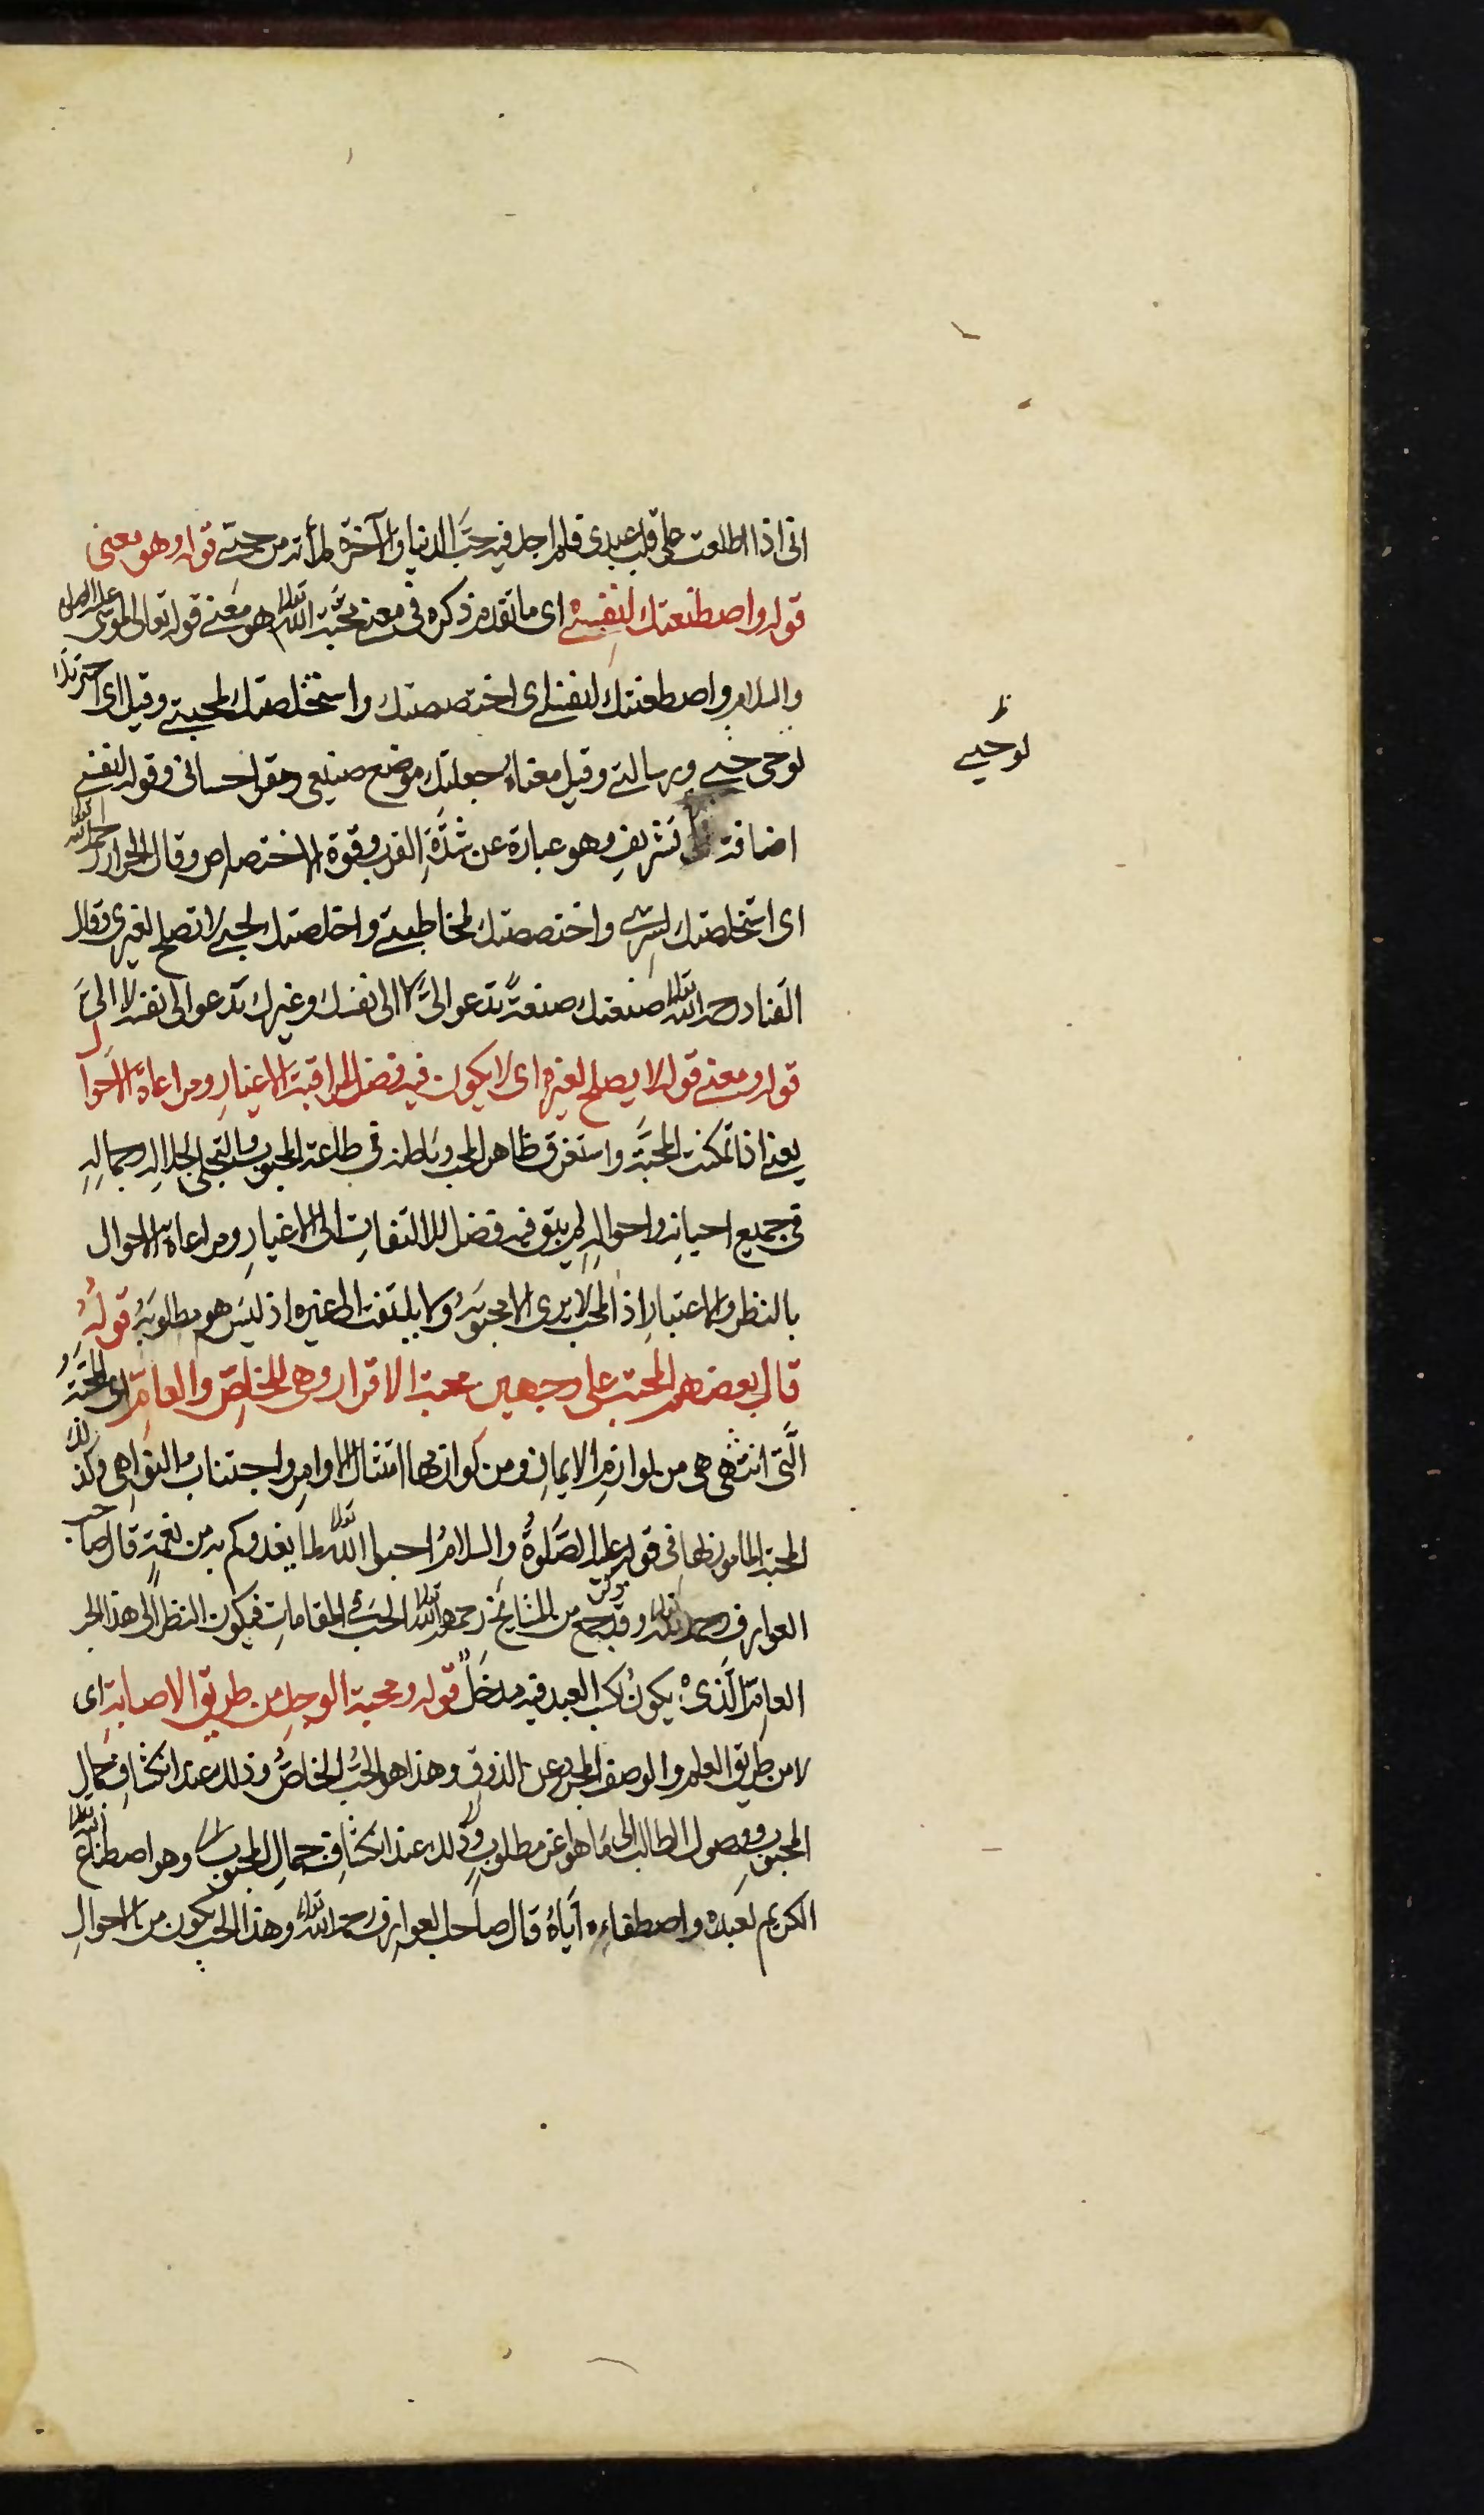 انى اذا اطلعت على قلب عبدى فلم اجد فيه حبّ الدنيا والآخرة ملأته من حبّى قوله وهو معنى
قوله واصطنعتك لنفسى اى ما تقدم ذكره فى معنى محبّة الله تعالى هو معنى قوله تعالى لموسى عليه الصلوة
والسلام واصطنعتك لنفسى اى اختصصتك واستخلصتك لمحبتى وقيل اى اخترتك
لوحى حبى ورسالتى وقيل معناه جعلتك موضع صنيعى ومقر احسانى وقوله لنفسى
لوحيى
اضافة تشريف وهو عبارة عن شدّة القرب وقوة الاختصاص وقال الخراز رحمه الله تعالى
اى استخلصتك لسرى واختصصتك لمخاطبتى واخلصتك لحبى لا تصلح لغيرى وقال
القناد رحمه الله تعالى صنعتك صنعةً تدعو الىّ لا الى نفسك وغيرك يدعو الى نفسه لا الىّ
قوله ومعنى قوله لا يصلح لغيره اى لا يكون فيه فضل لمراقبة الاغيار ومراعاة الاحوال
يعنى اذا تمكنت المحبّة واستغرق ظاهر المحب وباطنه فى طلعة المحبوب والتجلى لجلاله وجماله
فى جميع احيانه واحواله لم يبق فيه فضل للالتفات الى الاغيار ومراعاة الاحوال
بالنظر والاعتبار اذ المحب لا يرى الا محبوبه ولا يلتفت الى غيره اذ ليس هو مطلوبه قوله
قال بعضهم المحبة على وجهين محبة الاقرار وهى للخاصّ والعامّ اى المحبّة
الّتى انتهى هى من لوازم الايمان ومن لوازمها امتثال الاوامر واجتناب النواهى وكذلك
المحبة المامور بها فى قوله عليه الصّلوة والسلام احبوا الله تعالى لما يغدوكم به من نعمة قال صاحب
العوارف رحمه الله تعالى وقد جمع من المشايخ رحمهم الله تعالى الحب فى المقامات فيكون النظر الى هذا الحب
العامّ الّذى يكون لكسب العبد فيه مدخلٌ قوله ومحبة الوجد من طريق الاصابة اى
لا من طريق العلم والوصف المجرد عن الذوق وهذا هو الحبّ الخاصّ وذلك عند انكشاف جمال
المحبوب ووصول الطالب الى ما هو اعز مطلوب وذلك عند انكشاف جمال المحبوب وهو اصطناع الله تعالى
الكريم لعبده واصطفاءه اياه قال صاحب العوارف رحمه الله تعالى وهذا الحب يكون من الاحوال